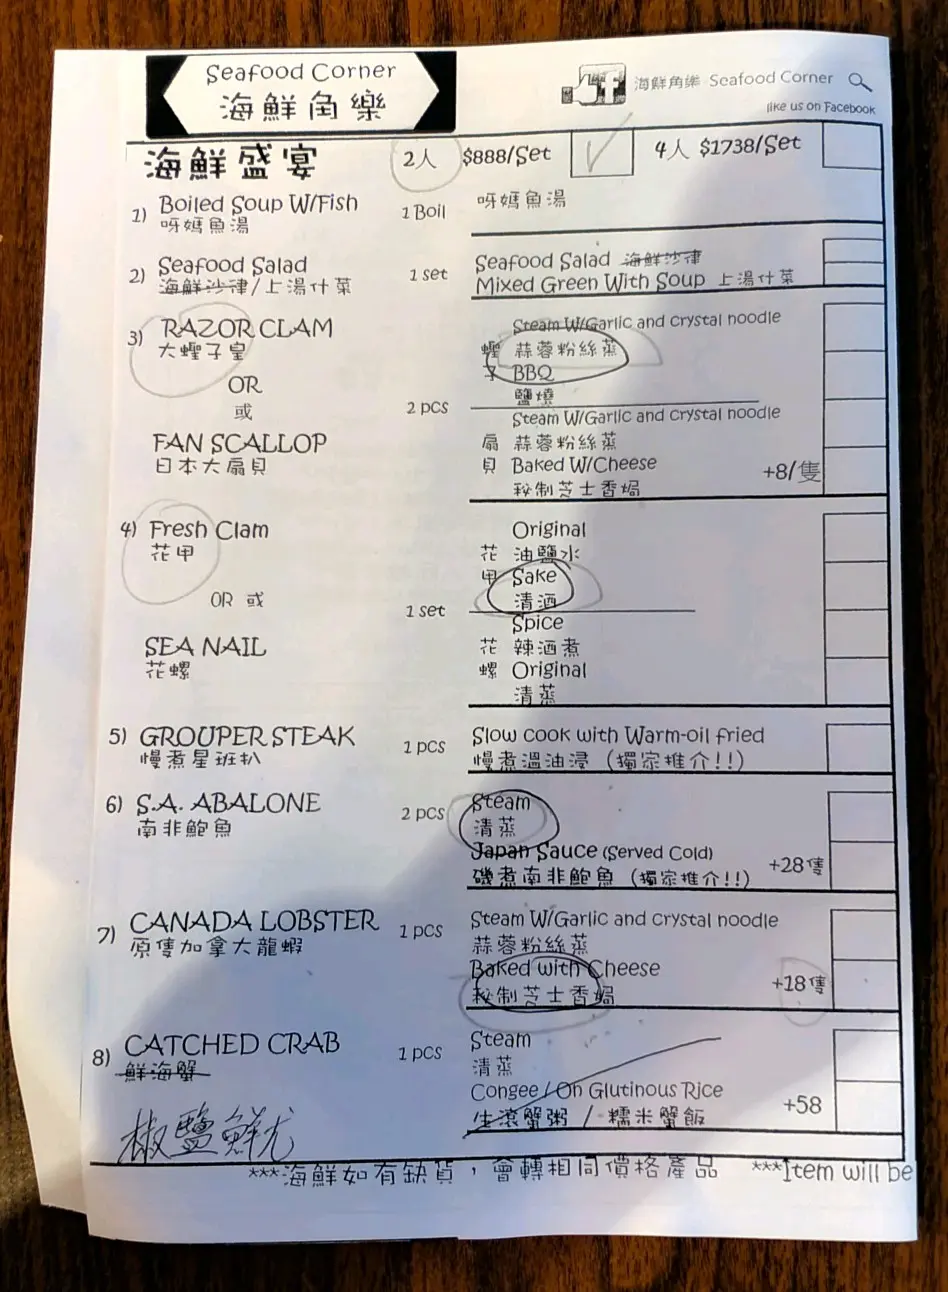 Seafood Corner
海鮮角樂
海鮮角樂 Seafood Corner
like us on Facebook
海鮮盛宴 2人 $888/Set 4人 $1738/Set
1) Boiled Soup W/Fish
呀媽魚湯
1 Boil
呀媽魚湯
2) Seafood Salad
海鮮沙律/上湯什菜
1 set
Seafood Salad 海鮮沙律
Mixed Green With Soup 上湯什菜
3) RAZOR CLAM
大蟶子皇
OR
或
FAN SCALLOP
日本大扇貝
2 pcs
Steam W/Garlic and crystal noodle
蟶 蒜蓉粉絲蒸
子 BBQ
鹽燒
Steam W/Garlic and crystal noodle
扇 蒜蓉粉絲蒸
貝 Baked W/Cheese +8/隻
秘制芝士香焗
4) Fresh Clam
花甲
OR 或
SEA NAIL
花螺
1 set
Original
花 油鹽水
甲 Sake
清酒
Spice
花 辣酒煮
螺 Original
清蒸
5) GROUPER STEAK
慢煮星班扒
1 pcs
Slow cook with Warm-oil fried
慢煮溫油浸 (獨家推介!!)
6) S.A. ABALONE
南非鮑魚
2 pcs
Steam
清蒸
Japan Sauce (Served Cold) +28隻
磯煮南非鮑魚 (獨家推介!!)
7) CANADA LOBSTER
原隻加拿大龍蝦
1 pcs
Steam W/Garlic and crystal noodle
蒜蓉粉絲蒸
Baked with Cheese +18隻
秘制芝士香焗
8) CATCHED CRAB
鮮海蟹
椒鹽鮮尤
1 pcs
Steam
清蒸
Congee / On Glutinous Rice +58
生滾蟹粥 / 糯米蟹飯
***海鮮如有缺貨，會轉相同價格產品 ***Item will be